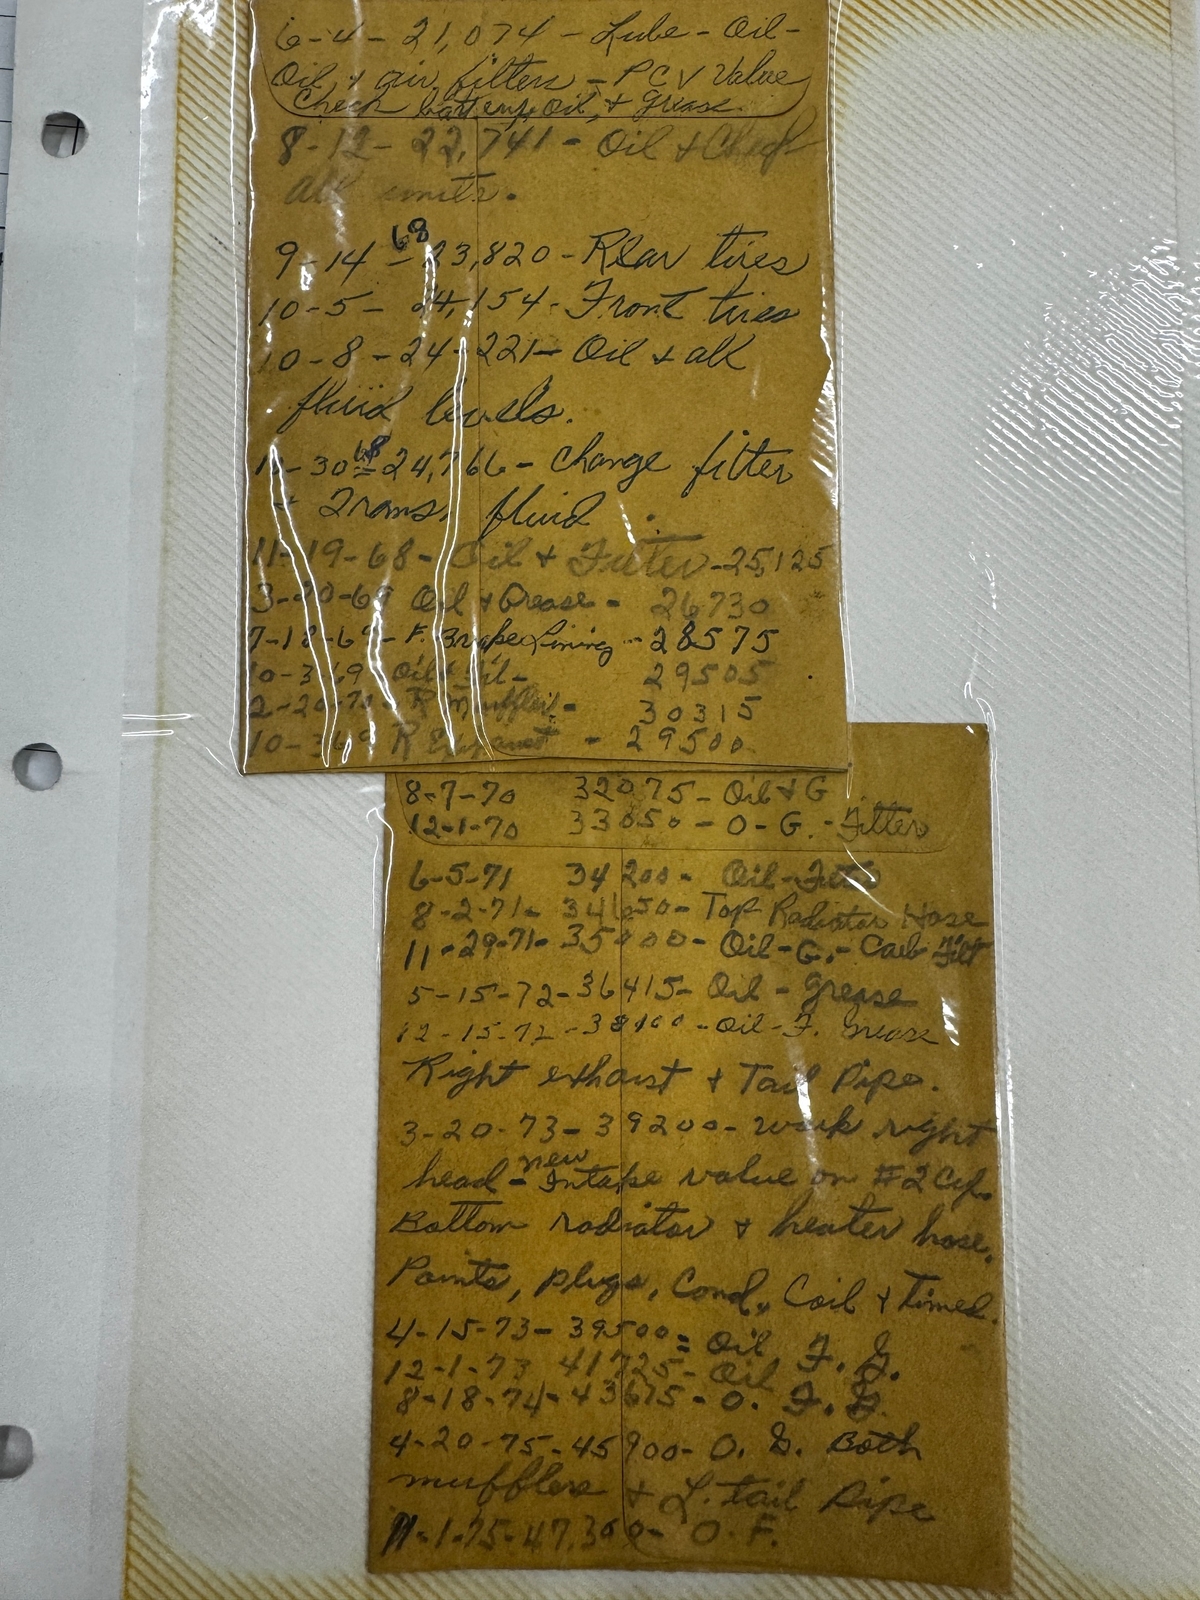 6-4- 21,074 - Lube - Oil -
Oil + air filters - PCV Valve
Check battery, Oil, + Grease.
8-12- 22,741 - Oil + Check
all units.
68
9-14 - 23,820 - Rear tires
10-5 - 24,154 - Front tires
10-8 - 24-221 - Oil + all
fluid levels.
68
-30 = 24,766 - Change filter
+ Trans. fluid
11-19-68 - Oil + Filter - 25,125
3-20-69 Oil + Grease - 26730
7-18-69 - F. Brake Lining - 28575
10-3-69 Oil + - 29505
2-20-70 - R Muffler - 30315
10-3-69 R Exhaust - 29500
8-7-70 32075 - Oil + G
12-1-70 33050 - O - G. - Filter
6-5-71 34200 - Oil -
8-2-71 - 34650 - Top Radiator Hose
11-29-71 - 35000 - Oil - G. - Carb Filt
5-15-72 - 36415 - Oil - Grease
12-15-72 - 38100 - Oil - F. Grease
Right exhaust + Tail Pipe.
3-20-73 - 39200 - work right
new
head - Intake valve on #2 Cyl.
Bottom radiator + heater hose.
Points, plugs, Cond., Coil + timed.
4-15-73 - 39500 = Oil F. G.
12-1-73 41725 - Oil
8-18-74 - 43675 - O. F. G.
4-20-75 - 45900 - O. G. Both
mufflers + L. tail Pipe
11-1-75 - 47,300 - O. F.